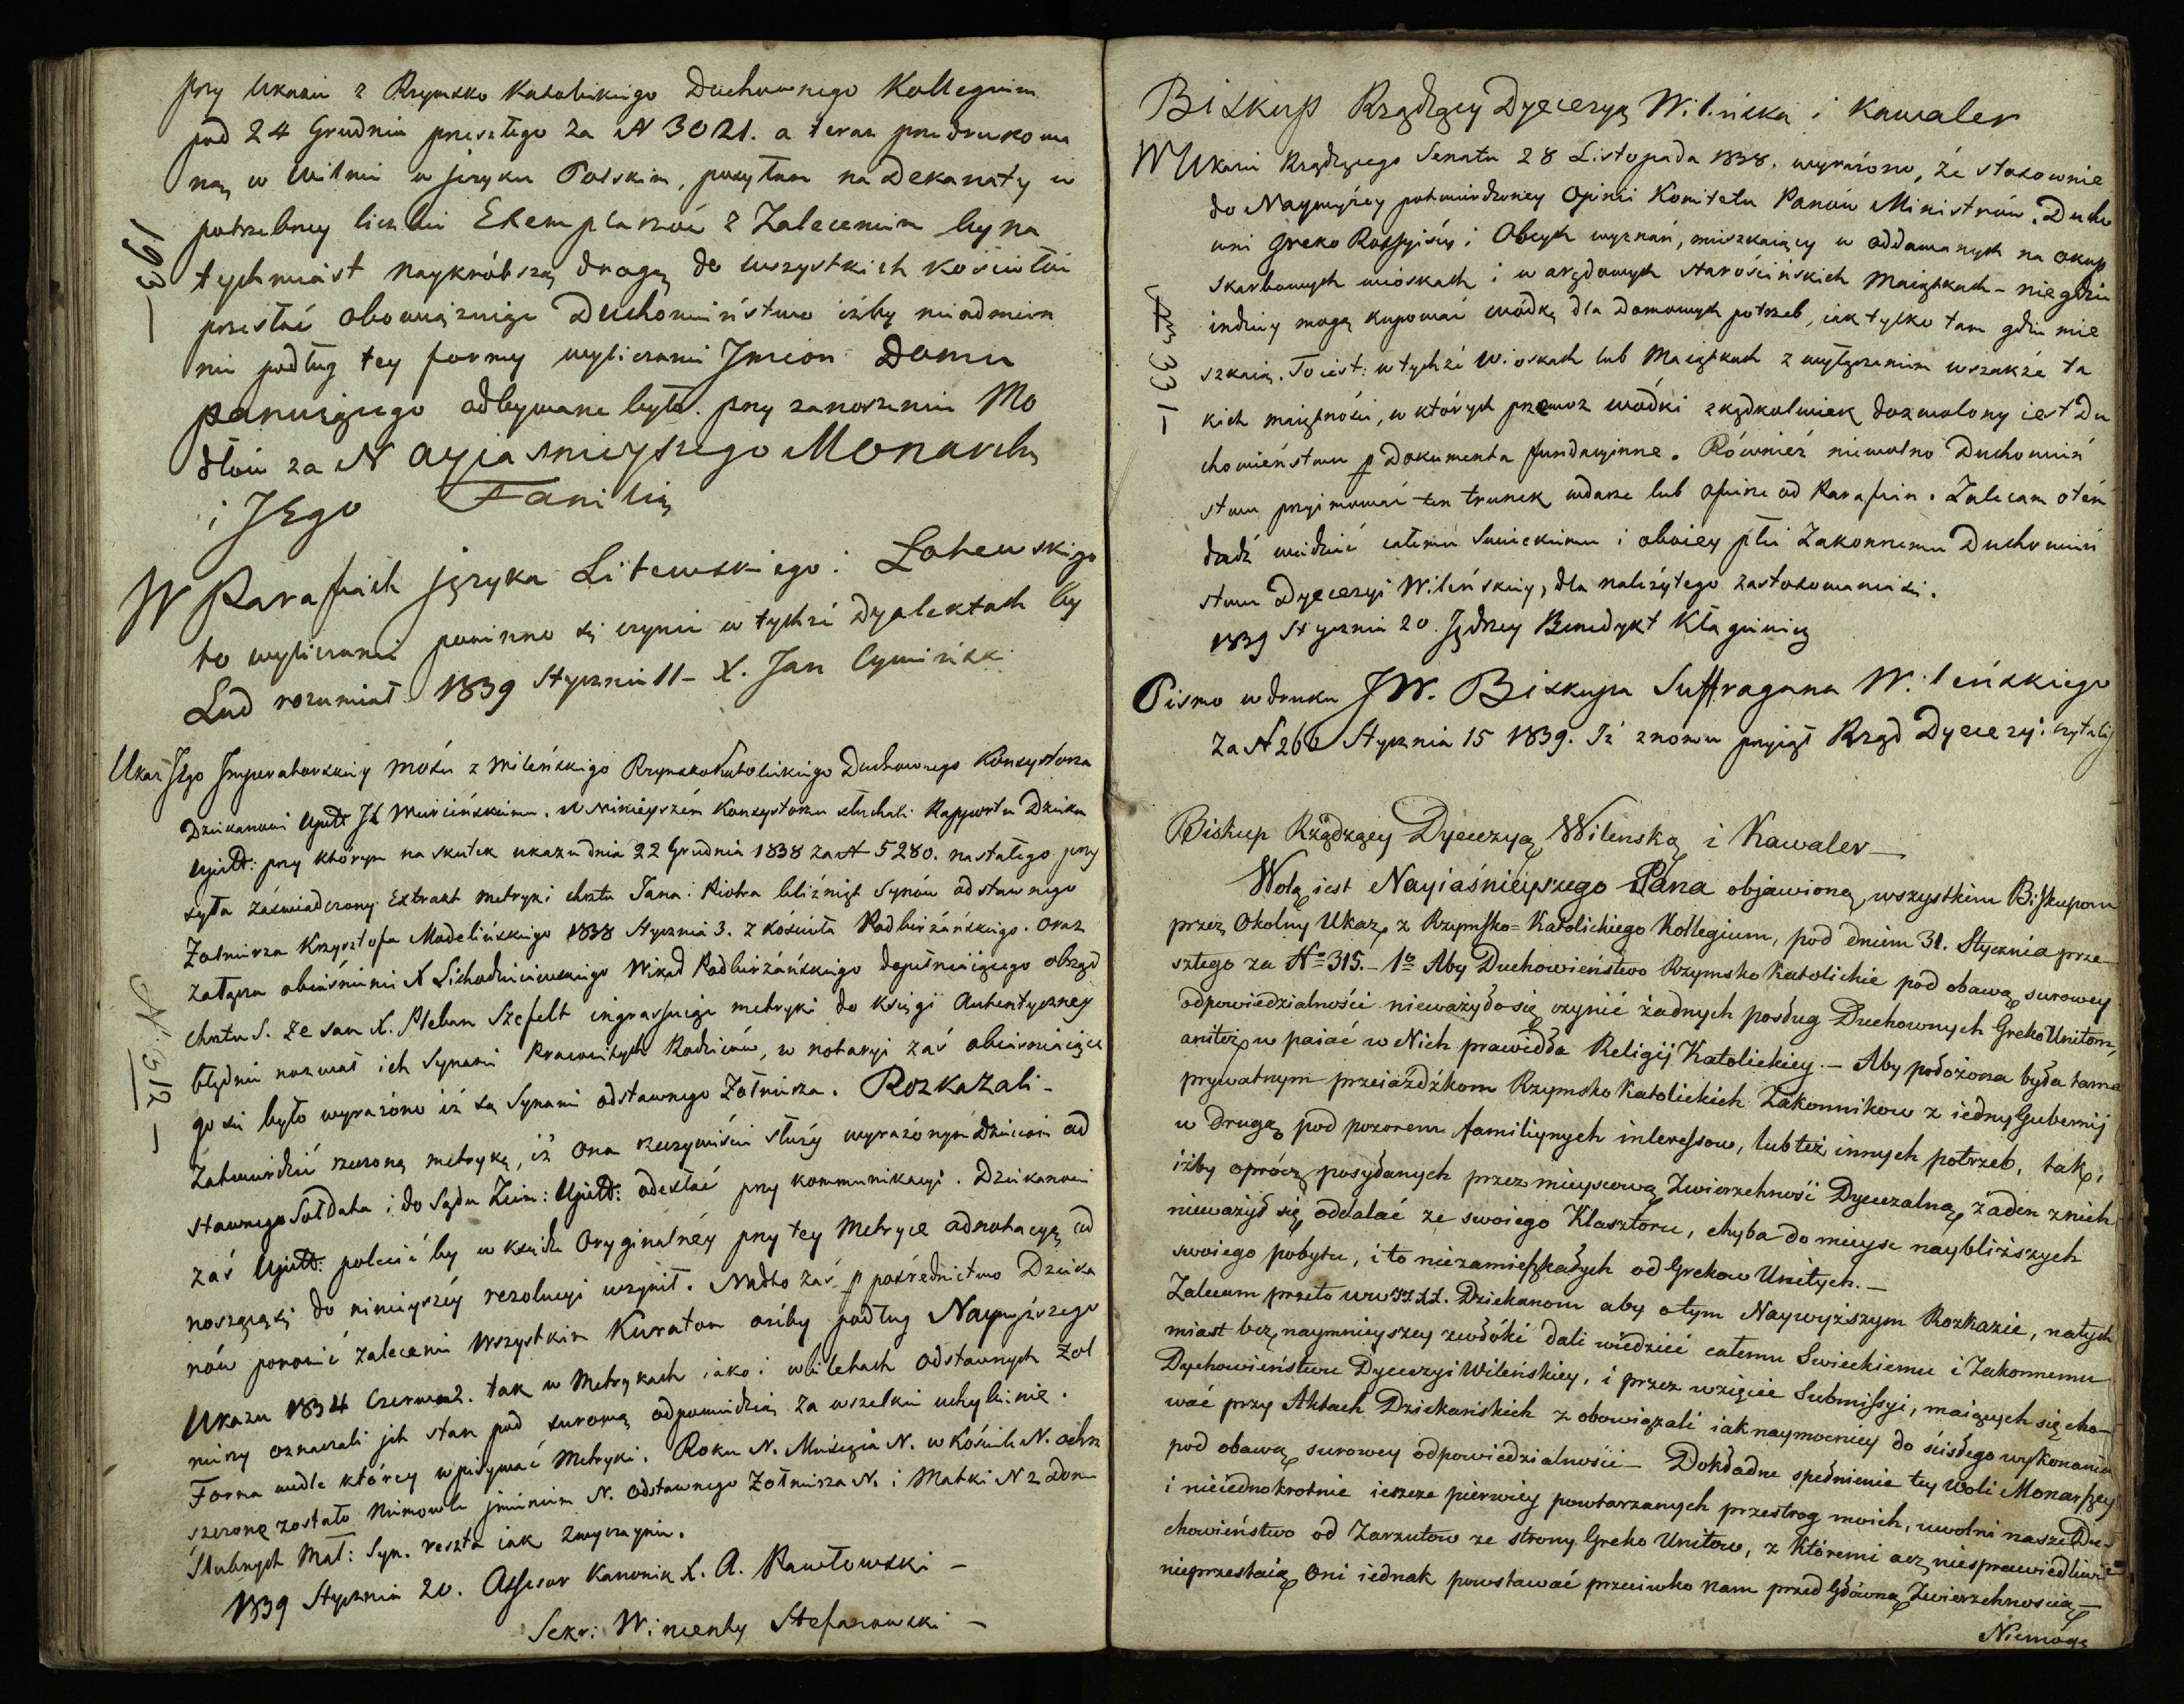 przy Ukazie z Rzymsko Katolickiego Duchownego Kollegium
pod 24 Grudnia przeszłego za N 3021. a teraz przedrukowa
ną w Wilnie w języku Polskim, posyłam na Dekanaty w
potrzebney liczbie Exemplarzów z Zaleceniem by na
tychmiast naykrótszą drogą do wszystkich kościołów
przesłać obowiązuiąc Duchowieństwo iżby nieodmien
nie podług tey formy wyliczanie Jmion Domu
panuiącego odbywane było. przy zanoszeniu Mo
dłów za Nayiasnieyszego Monarchę
i JEgo Familią
W Parafiach języka Litewskiego i Łotewskiego
to wyliczanie powinno się czynić w tychże Dyalektach by
Lud rozumiał 1839 Stycznia 11 – X. Jan Cywiński
193 –
Ukaz JEgo Jmperatorskiey Mości z Wileńskiego Rzymsko Katolickiego Duchownego Konsystorza
Dziekanowi Upitt JX Murcińskiemu. W Ninieyszém Konsystorzu słuchali Rapportu Dzieka
Upitt: przy którym na skutek ukazu dnia 22 Grudnia 1838 za N 5280. nastałego przy
syła zaświadczony Extrakt metryki chrztu Jana i Piotra bliźniąt Synów odstawnego
Żołnierza Krzysztofa Madelińskiego 1838 Stycznia 3. z kościoła Podbirżańskiego. oraz
załącza obiaśnienie X Lichodzieiewskiego Wikad Podbirżańskiego dopełniaiącego obrząd
chrztu S. że sam X. Pleban Szefelt ingrassuiąc metryki do księgi Autentyczney
błędnie nazwał ich Synami Pracowitych Rodziców, w notacyi zaś obiasniaiące
go się było wyrażono iż są Synami odstawnego Żołnierza. Rozkazali –
Zatwierdzić rzeczoną metrykę, iż ona rzeczywiście służy wyrażonym Dzieciom od
stawnego Sołdata i do Sądu Ziem: Upitt: odesłać przy kommunikacyi. Dziekanowi
zaś Upitt: polecić by w księdze Oryginalnéy przy tey Metryce adnotacyą od
noszącą się do ninieyszéy rezolucyi uczynił. Nadto zaś p pośrednictwo Dzieka
nów ponowić zalecenie wszystkim Kuratom ażeby podług Naywyższego
Ukazu 1834 Czerwca 2. tak w Metrykach iako i w biletach odstawnych Żoł
nierzy oznaczali jch stan pod surową odpowiedzią za wszelkie uchybienie.
Forma wedle którey wpisywać Metryki. Roku N. Miesiąca N. w Kościele N. ochrz
szczone zostało Niemowle jmieniem N. odstawnego Żołnierza N. i Matki N z Domu
Ślubnych Mał: Syn. reszta iak zwyczaynie.
1839 Stycznia 20. Assesor Kanonik X. A. Pawłowski –
Sekr: Wincenty Stefanowski –
N. 312 –
Biskup Rządzący Dyecezyą Wileńską i Kawaler
W Ukazie Rządzącego Senatu 28 Listopada 1838. wyrażono, że stosownie
do Naywyższey potwierdzoney Opinii Komitetu Panów Ministrów. Ducho
wni Greko Rossyiscy i Obcych wyznań, mieszkaiący w oddawanych na okup
Skarbowych wioskach i w arędownych Starościńskich Maiątkach – nie gdzie
indziey mogą kupować wódkę dla domowych potrzeb, iak tylko tam gdzie mie
szkaią. To iest: w tychże Wioskach lub Maiątkach z wyłączeniem wszakże ta
kich maiętności, w których przewoz wódki zkądkolwiek dozwolony iest Du
chowieństwu p Dokumenta fundacyinne. Również niewolno Duchowień
stwu przyimować ten trunek w darze lub ofiarze od Parafian. Zalecam o tém
dadź wiedzieć całemu Swieckiemu i oboiey płci Zakonnemu Duchowień
stwu Dyecezyi Wileńskiey, dla należytego zastosowania się.
1839 Stycznia 20. Jędrzey Benedykt Kłągiewicz
331 –
Pismo w druku JW. Biskupa Suffragana Wileńskiego
za N 260 Stycznia 15 1839. Iż znowu przyiął Rząd Dyecezyi
Biskup Rządzący Dyecezyą Wilenską i Kawaler –
Wolą iest Nayiaśnieyszego Pana objawioną wszystkim Biskupom
przez Okolny Ukaz, z Rzymsko=Katolickiego Kollegium, pod dniem 31. Stycznia prze–
szłego za N° 315. – 1° Aby Duchowieństwo Rzymsko Katolickie pod obawą surowey
odpowiedzialności nieważyło się czynić żadnych posług Duchownych Greko Unitom,
aniteż wpaiać w Nich prawidła Religij Katolickiey. – Aby położona była tama
prywatnym przeiażdżkom Rzymsko Katolickich Zakonnikow z iedney Gubernij
w drugą pod pozorem familiynych interessow, lub też innych potrzeb, tak,
iżby oprócz posyłanych przez mieyscową Zwierzchność Dyecezalną żaden z nich
nieważył się oddalać ze swoiego Klasztoru, chyba do mieysc naybliższych
swoiego pobytu, i to niezamieszkałych od Grekow Unitych. –
Zalecam przeto WW JJ XX. Dziekanom aby o tym Naywyższym Rozkazie, natych
miast bez naymnieyszey zwłóki dali wiedzieć całemu Swieckiemu i Zakonnemu
Duchowieństwu Dyecezyi Wileńskiey, i przez wzięcie Submissyi, maiących się cho–
wać przy Aktach Dziekańskich zobowiązali iak naymocniey do ścisłego wykonania
pod obawą surowey odpowiedzialności – Dokładne spełnienie tey Woli Monarszey
i nieiednokrotnie ieszcze pierwiey powtarzanych przestrog moich, uwolni nasze Du–
chowieństwo od Zarzutow ze strony Greko Unitow, z któremi acz niesprawiedliwie
nieprzestaią Oni iednak powstawać przeciwko nam przed Główną Zwierzchnością –
Niemogę